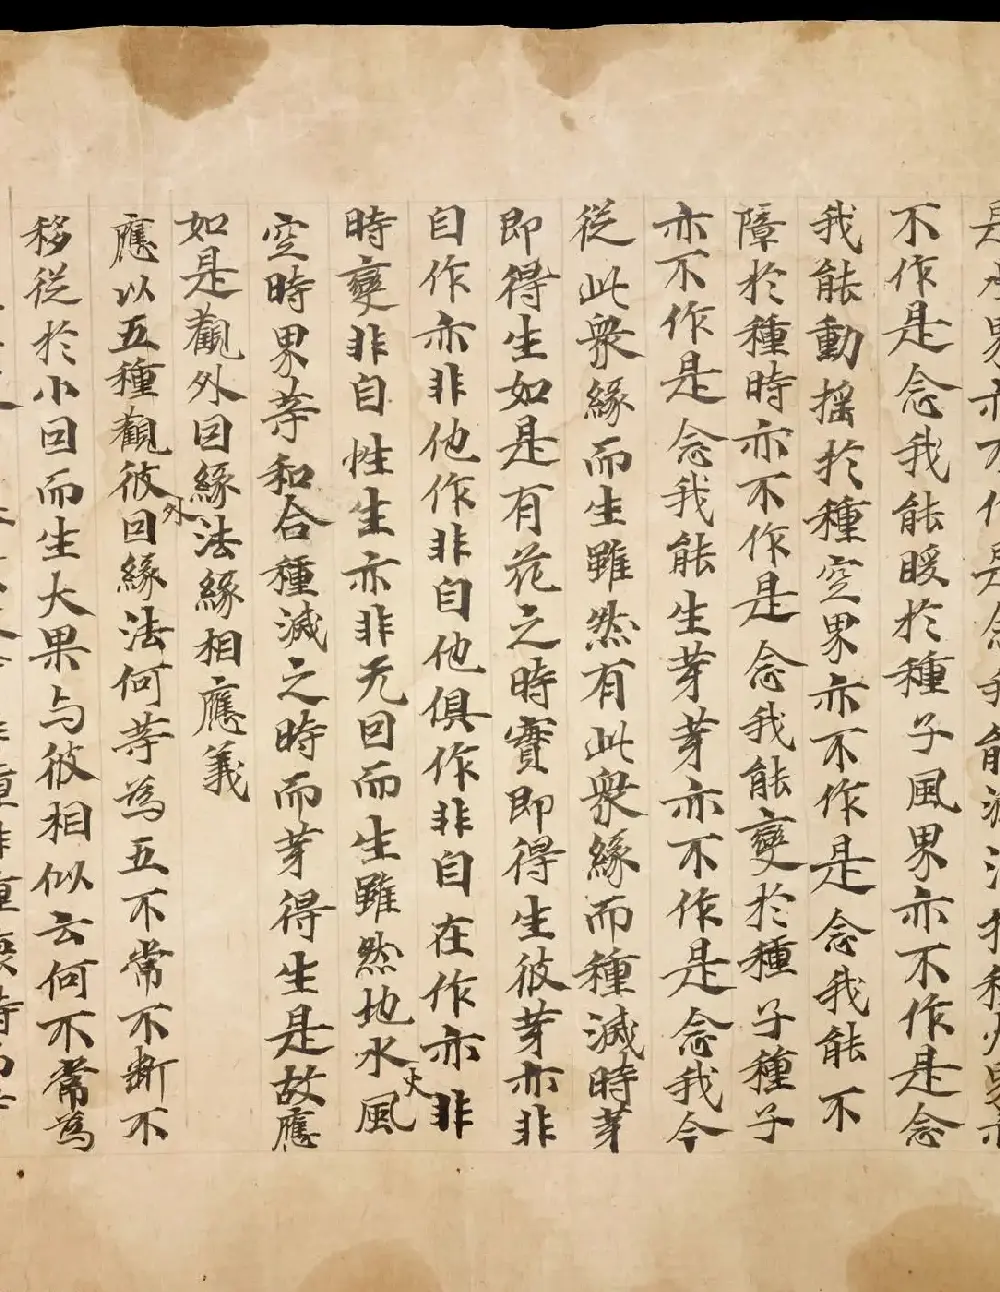 是水界亦不作是念我能種火界亦
不作是念我能暖扵種子風界亦不作是念
我能動揺扵種空界亦不作是念我能不
障扵種時亦不作是念我能變扵種子種子
亦不作是念我能生芽芽亦不作是念我今
從此衆緣而生雖然有此衆緣而種滅時芽
即得生如是有花之時實即得生彼芽亦非
自作亦非他作非自他俱作非自在作亦非
時變非自性生亦非无因而生雖然地水火風
空時界等和合種滅之時而芽得生是故應
如是觀外因緣法緣相應義
應以五種觀彼外因緣法何等為五不常不斷不
移從扵小因而生大果与彼相似云何不常為